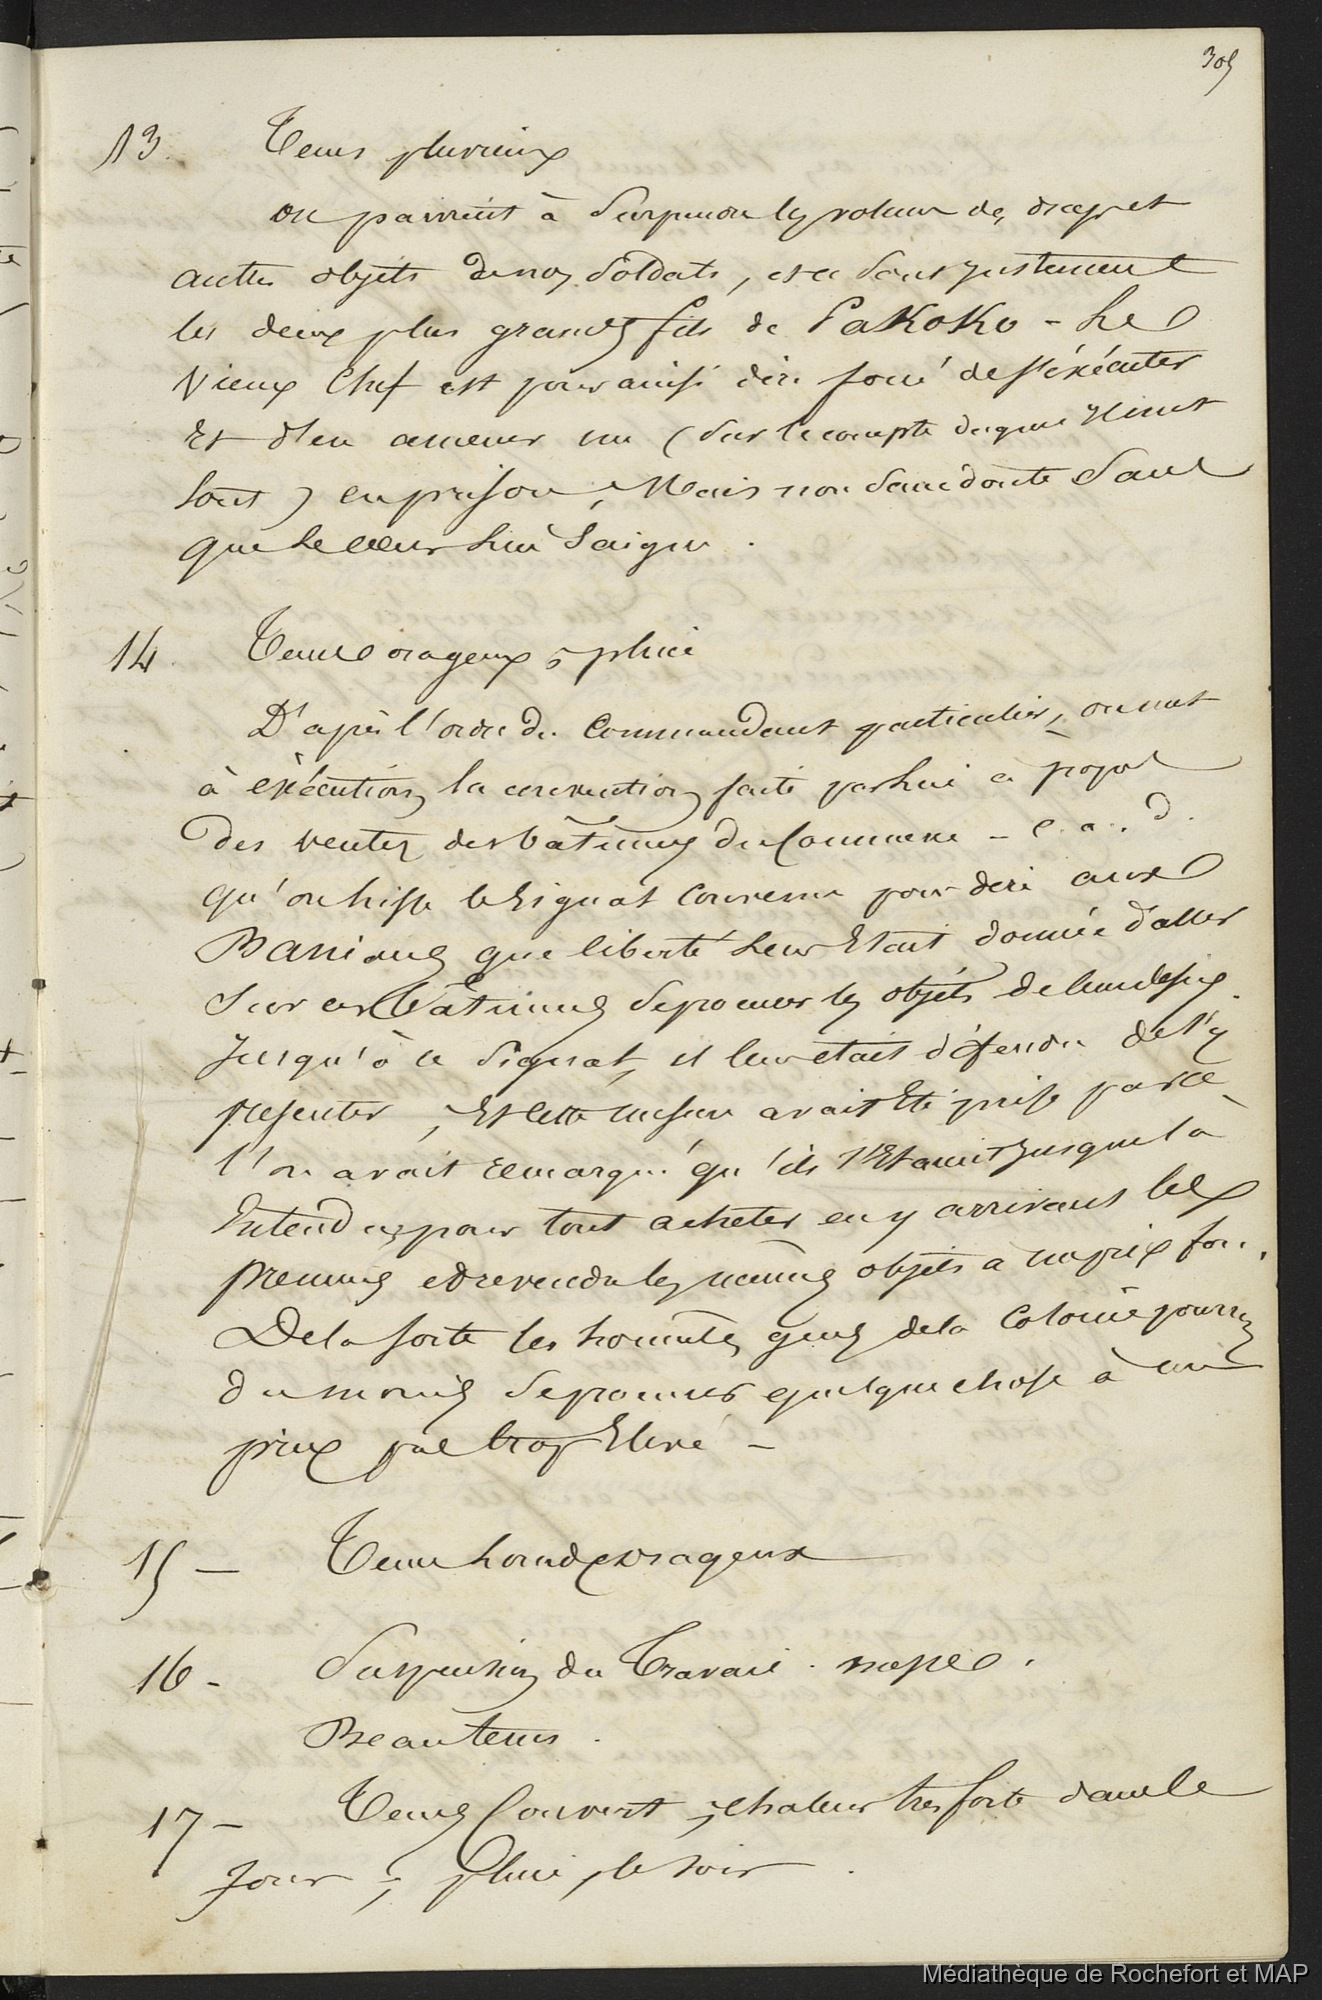 305
13. Tems pluvieux
on parvient à surprendre les voleurs des draps et
autres objets de nos soldats, et ce sont justement
les deux plus grands fils de PaKoKo - Le
vieux Chef est pour ainsi dire forcé de s'éxécuter
Et d'en amener un (sur le compte duquel ils met
tout) en prison, Mais non sans doute sans
que le cœur lui saigne.
14. Tems orageux; pluie
D'après l'ordre du Commandant particulier, on met
à éxécution la convention faite par lui à propos
des ventes des bâtimens du Commerce - c. a. d.
qu'on hisse le signal convenu pour dire aux
que liberté leur Etait donnée d'aller
sur ces Bâtimens se procurer les objets de leur désir.
Jusqu'à ce signal, il leur etait défendu de s'y
présenter, Et cette mesure avait Eté prise parce
l'on avait remarqué qu'ils s'Etaient jusque là
Entendus pour tout acheter en y arrivant les
premiers et revendre les mêmes objets à un prix fou.
De la sorte les honnêtes gens de la Colonie pourron
du moins se procurer quelque chose à un
prix pas trop Elevé -
15 - Tems lourd, orageux
16 - Suspension du Travail. messe.
Beau tems.
17 - Tems Couvert; chaleur très forte dans le
Jour; pluie le soir.
Médiathèque de Rochefort et MAP